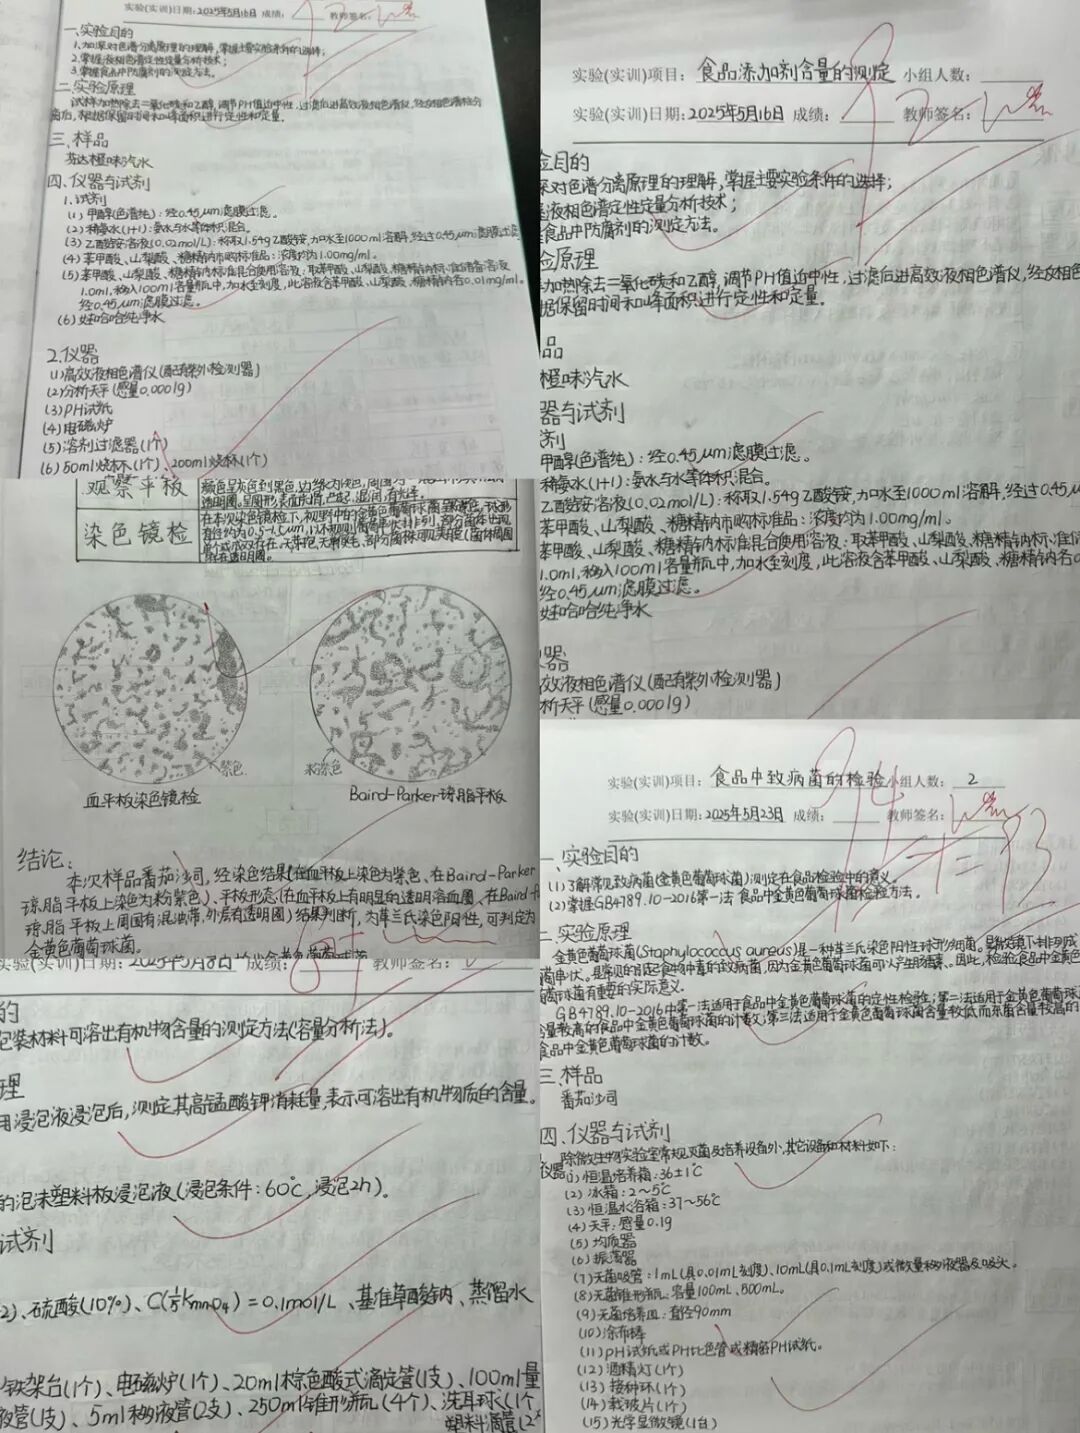 实验(实训)日期:2025年5月16日 成绩: 教师签名:
一、实验目的
1.加深对色谱分离原理的理解,掌握主要实验条件的选择;
2.掌握液相色谱定性定量分析技术;
3.掌握食品中防腐剂的测定方法。
二.实验原理
试样加热除去二氧化碳和乙醇,调节PH值近中性,过滤后进高效液相色谱仪,经反相色谱分
离后,根据保留时间和峰面积进行定性和定量。
三.样品
芬达橙味汽水
四.仪器与试剂
1.试剂
(1) 甲醇(色谱纯):经0.45μm滤膜过滤。
(2) 稀氨水(1+1):氨水与水等体积混合。
(3) 乙酸铵溶液(0.02mol/L):称取1.54g乙酸铵,加水至1000ml溶解,经过0.45μm滤膜过滤
(4) 苯甲酸、山梨酸、糖精钠市购标准品:浓度均为1.00mg/ml。
(5) 苯甲酸、山梨酸、糖精钠标准混合使用溶液:取苯甲酸、山梨酸、糖精钠标准储备溶液
1.0ml,移入100ml容量瓶中,加水至刻度,此溶液含苯甲酸、山梨酸、糖精钠各0.01mg/ml。
经0.45μm滤膜过滤。
(6) 娃哈哈纯净水
2.仪器
(1)高效液相色谱仪(配有紫外检测器)
(2)分析天平(感量0.0001g)
(3)PH试纸
(4)电磁炉
(5)溶剂过滤器(1个)
(6)50ml烧杯(1个)、200ml烧杯(1个)
实验(实训)项目: 食品添加剂含量的测定 小组人数:
实验(实训)日期:2025年5月16日 成绩: 教师签名:
92
验目的
深对色谱分离原理的理解,掌握主要实验条件的选择;
握液相色谱定性定量分析技术;
握食品中防腐剂的测定方法。
验原理
加热除去二氧化碳和乙醇,调节PH值近中性,过滤后进高效液相色谱仪,经反相色
据保留时间和峰面积进行定性和定量。
品
橙味汽水
器与试剂
剂
甲醇(色谱纯):经0.45μm滤膜过滤。
稀氨水(1+1):氨水与水等体积混合。
乙酸铵溶液(0.02mol/L):称取1.54g乙酸铵,加水至1000ml溶解,经过0.45μ
苯甲酸、山梨酸、糖精钠市购标准品:浓度均为1.00mg/ml。
苯甲酸、山梨酸、糖精钠标准混合使用溶液:取苯甲酸、山梨酸、糖精钠标准储
1.0ml,移入100ml容量瓶中,加水至刻度,此溶液含苯甲酸、山梨酸、糖精钠各0
经0.45μm滤膜过滤。
娃哈哈纯净水
器
效液相色谱仪(配有紫外检测器)
析天平(感量0.0001g)
观察平板
染色镜检
紫色
粉紫色
血平板染色镜检
Baird-Parker琼脂平板
结论:
本次样品番茄沙司,经染色结果(在血平板上染色为紫色、在Baird-Parker
琼脂平板上染色为粉紫色)、平板形态(在血平板上有明显的透明溶血圈、在Baird-P
琼脂平板上周围有混浊带,外层有透明圈)结果判断,为革兰氏染色阳性,可判定为
金黄色葡萄球菌。
实验(实训)日期: 2025年5月8日 成绩: 教师签名:
的
包装材料可溶出有机物含量的测定方法(容量分析法)。
理
用浸泡液浸泡后,测定其高锰酸钾消耗量,表示可溶出有机物质的含量。
的泡沫塑料板浸泡液(浸泡条件:60℃,浸泡2h)。
试剂
2)、硫酸(10%)、C(1/5KmnO4)=0.1mol/L、基准草酸钠、蒸馏水
铁架台(1个)、电磁炉(1个)、20ml棕色酸式滴定管(1支)、100ml量
液管(1支)、5ml移液管(2支)、250ml锥形瓶(4个)、洗耳球(1个
塑料滴管(2
实验(实训)项目: 食品中致病菌的检验 小组人数: 2
实验(实训)日期:2025年5月23日 成绩: 教师签名:
94
-1=93
一.实验目的
(1)了解常见致病菌(金黄色葡萄球菌)测定在食品检验中的意义。
(2)掌握GB4789.10-2016第一法 食品中金黄色葡萄球菌检验方法。
二.实验原理
金黄色葡萄球菌(Staphylococcus aureus)是一种革兰氏染色阳性球形细菌。显微镜下排列成
葡萄串状。是常见的引起食物中毒的致病菌,因为金黄色葡萄球菌可以产生肠毒素。因此,检验食品中金黄色
葡萄球菌有重要的实际意义。
GB4789.10-2016中第一法适用于食品中金黄色葡萄球菌的定性检验;第二法适用于金黄色葡萄球
含量较高的食品中金黄色葡萄球菌的计数;第三法适用于金黄色葡萄球菌含量较低而杂菌含量较高的
食品中金黄色葡萄球菌的计数。
三.样品
番茄沙司
四.仪器与试剂
除微生物实验室常规灭菌及培养设备外,其它设备和材料如下:
仪器:(1)恒温培养箱:36±1℃
(2) 冰箱:2~5℃
(3) 恒温水浴箱:37~56℃
(4) 天平:感量0.1g
(5) 均质器
(6) 振荡器
(7)无菌吸管:1mL(具0.01mL刻度)、10mL(具0.1mL刻度)或微量移液器及吸头。
(8)无菌锥形瓶:容量100mL、500mL。
(9)无菌培养皿:直径90mm
(10)涂布棒
(11)pH试纸或PH比色管或精密PH试纸。
(12)酒精灯(1个)
(13)接种环(1个)
(14)载玻片(1个)
(15)光学显微镜(1台)